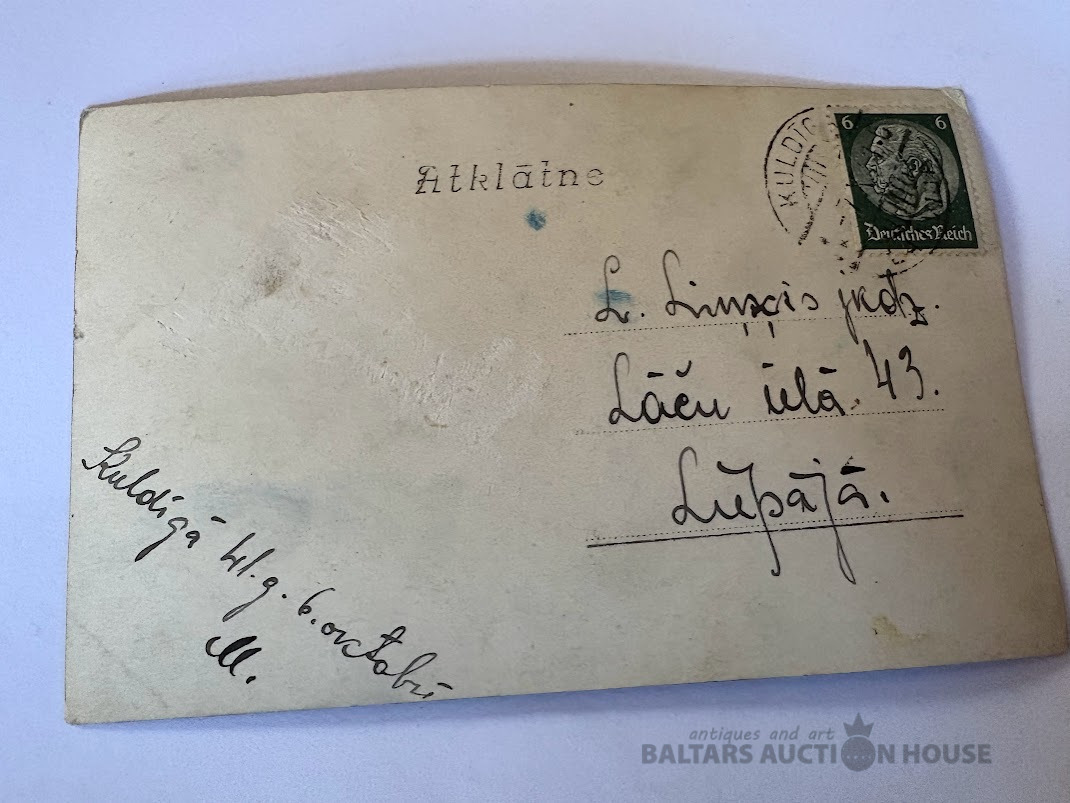 Atklātne
KULDĪG
6 6
Deutsches Reich
L. jkdz.
Lāču ielā 43.
Liepājā.
Kuldīgā 41.g. 6.oktobrī
M.
antiques and art
BALTARS AUCTION HOUSE